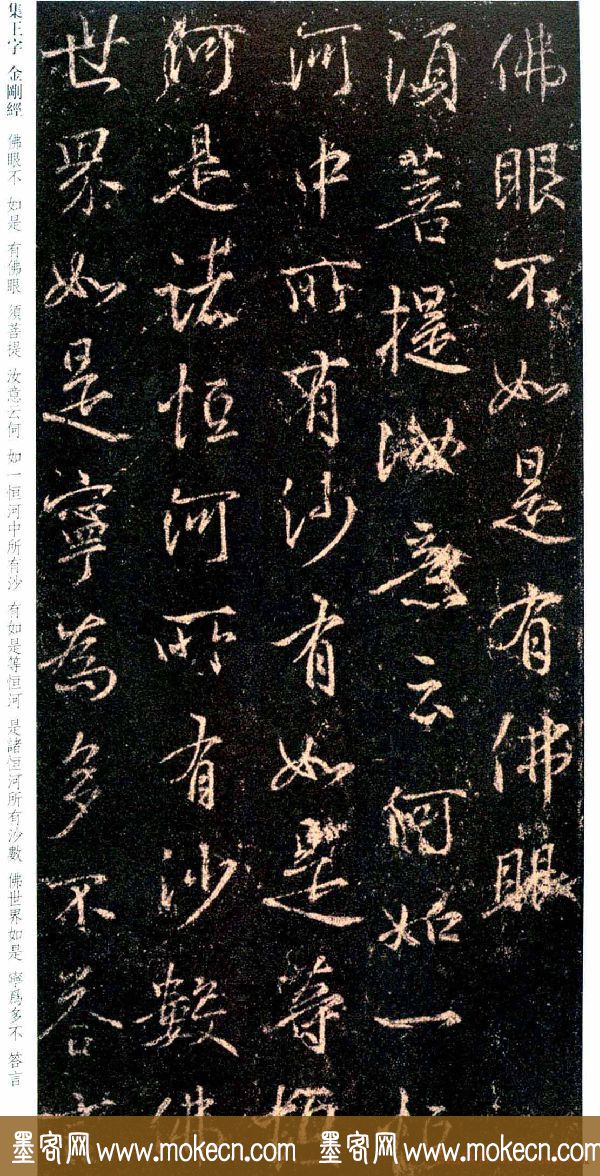 佛眼不如是有佛眼
須菩提汝意云何如一恒
河中所有沙有如是等恒
河是諸恒河所有沙數佛
世界如是寧為多不答言
集王字 金剛經 佛眼不 如是 有佛眼 須菩提 汝意云何 如一恒河中所有沙 有如是等恒河 是諸恒河所有沙數 佛世界如是 寧爲多不 答言
墨客网 www.mokecn.com 墨客网 www.mokecn.com